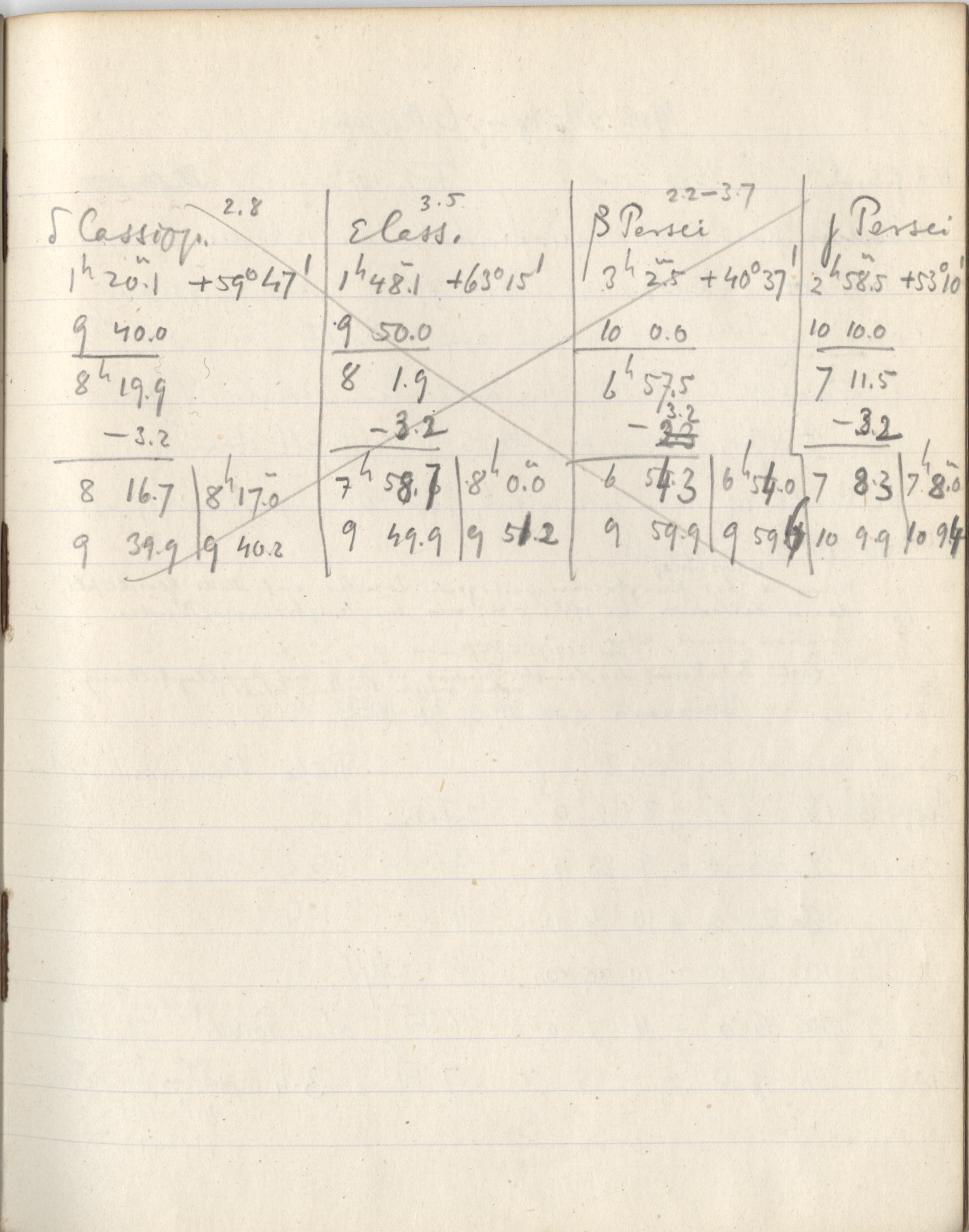 δ Cassiop. 2.8
1ʰ 20ᵐ.1 +59°47'
9 40.0
8ʰ 19.9
−3.2
8 16.7 | 8ʰ 17ᵐ.0
9 39.9 | 9 40.2
ε Cass. 3.5
1ʰ 48ᵐ.1 +63°15'
9 50.0
8 1.9
−3.2
7ʰ 58.7 | 8ʰ 0ᵐ.0
9 49.9 | 9 51.2
β Persei 2.2−3.7
3ʰ 2ᵐ.5 +40°37'
10 0.0
6ʰ 57.5
−3.2
6 54.3 | 6ʰ 54ᵐ.0
9 59.9 | 9 59.6
γ Persei
2ʰ 58ᵐ.5 +53°10'
10 10.0
7 11.5
−3.2
7 8.3 | 7ʰ 8ᵐ.0
10 9.9 | 10 9.4